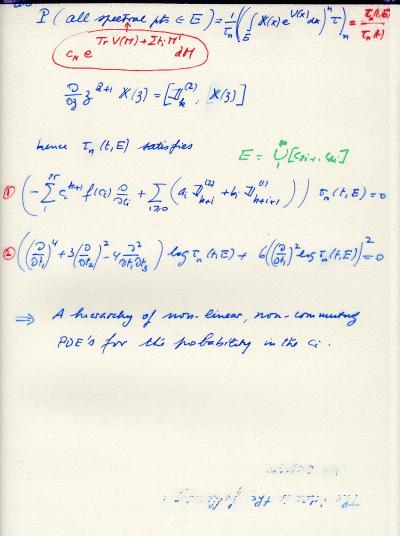 P ( all spectral pts ∈ E ) = 1/τn ( ( ∫_E X(x) e^{V(x)} dx )^n τ )_n = τn(t,E)/τn(t)
c_n e^{Tr V(M) + Σ ti M^i} dM
∂/∂z z^{k+1} X(z) = [ J_k^{(2)}, X(z) ]
hence τn (t,E) satisfies
E = ⋃_1^r [c2i-1, c2i]
① ( - Σ_1^{2r} ci^{k+1} f(ci) ∂/∂ci + Σ_{i≥0} ( ai J_{k+i}^{(2)} + bi J_{k+i+1}^{(1)} ) ) τn (t,E) = 0
② ( (∂/∂t1)^4 + 3 (∂/∂t2)^2 - 4 ∂^2/∂t1∂t3 ) log τn (t,E) + 6 ( (∂/∂t1)^2 log τn (t,E) )^2 = 0
⇒ A hierarchy of non-linear, non-commuting
PDE's for the probability in the ci .
The idea is the following :